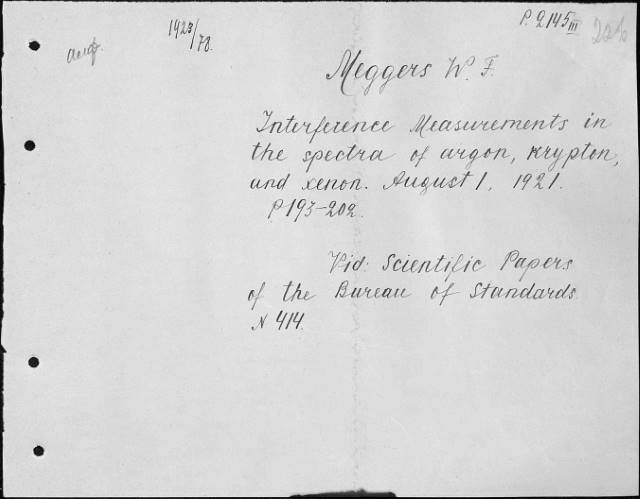 1923/78.
P. 2145 III
Meggers W. F.
Interference Measurements in
the spectra of argon, krypton,
and xenon. August 1, 1921.
P 193-202.
Vid: Scientific Papers
of the Bureau of Standards.
N 414.